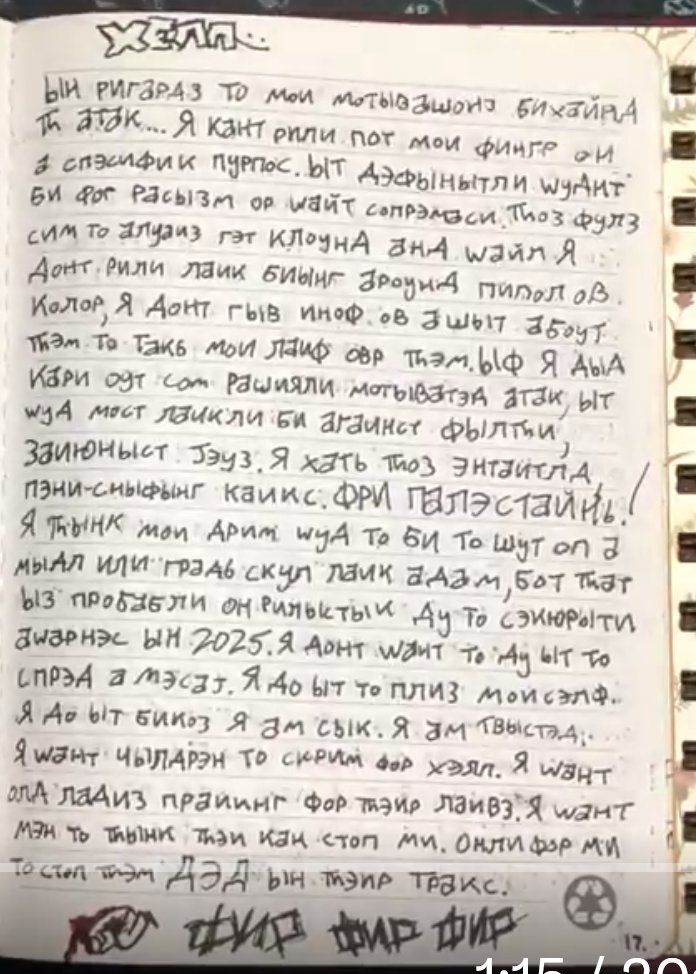 ХЕЛП
ЫН РИГАРДЗ ТО МОИ МОТЫВАШОНЗ БИХАЙНД
ТҺ АТАК... Я КАНТ РИЛИ ПОТ МОИ ФИНГР ОН
А СПЭСИФИК ПУРПОС. ЫТ ДЭФЫНЫТЛИ WУДНТ
БИ ФОР РАСЫЗМ ОР WАЙТ СОПРЭМАСИ. ТҺОЗ ФУЛЗ
СИМ ТО АЛУАИЗ ГЭТ КЛОУНД АНД WАЙЛ Я
ДОНТ РИЛИ ЛАИК БИЫНГ АРОУНД ПИПОЛ ОВ
КОЛОР, Я ДОНТ ГЫВ ИНОФ ОВ А ШЫТ АБОУТ
ТҺЭМ ТО ТАКЬ МОИ ЛАИФ ОВР ТҺЭМ. ЫФ Я ДЫД
КАРИ ОУТ СОМ РАШИЯЛИ МОТЫВАТЭД АТАК, ЫТ
WУД МОСТ ЛАИКЛИ БИ АГАИНСТ ФЫЛТҺИ,
ЗАИЮНЫСТ JЭУЗ. Я ХАТЬ ТҺОЗ ЭНТАЙТЛД,
ПЭНИ-СНЫФЫНГ КАИКС. ФРИ ПАЛЭСТАЙНЬ!
Я ТҺЫНК МОИ ДРИМ WУД ТО БИ ТО ШУТ ОП А
МЫДЛ ИЛИ ГРАДЬ СКУЛ ЛАИК АДАМ, БОТ ТҺАТ
ЫЗ ПРОБАБЛИ ОНРИЛЫКТЫК ДУ ТО СЭКЮРЫТИ
АWАРНЭС ЫН 2025. Я ДОНТ WАНТ ТО ДУ ЫТ ТО
СПРЭД А МЭСАJ. Я ДО ЫТ ТО ПЛИЗ МОИСЭЛФ.
Я ДО ЫТ БИКОЗ Я АМ СЫК. Я АМ ТВЫСТЭД.
Я WАНТ ЧЫЛДРЭН ТО СКРИМ ФОР ХЭЛП. Я WАНТ
ОЛД ЛАДИЗ ПРАЙИНГ ФОР ТҺЭИР ЛАЙВЗ. Я WАНТ
МЭН ТО ТҺЫНК ТҺЭИ КАН СТОП МИ. ОНЛИ ФОР МИ
ТО СТОП ТҺЭМ ДЭД ЫН ТҺЭИР ТРАКС.
ФИР ФИР ФИР
17.